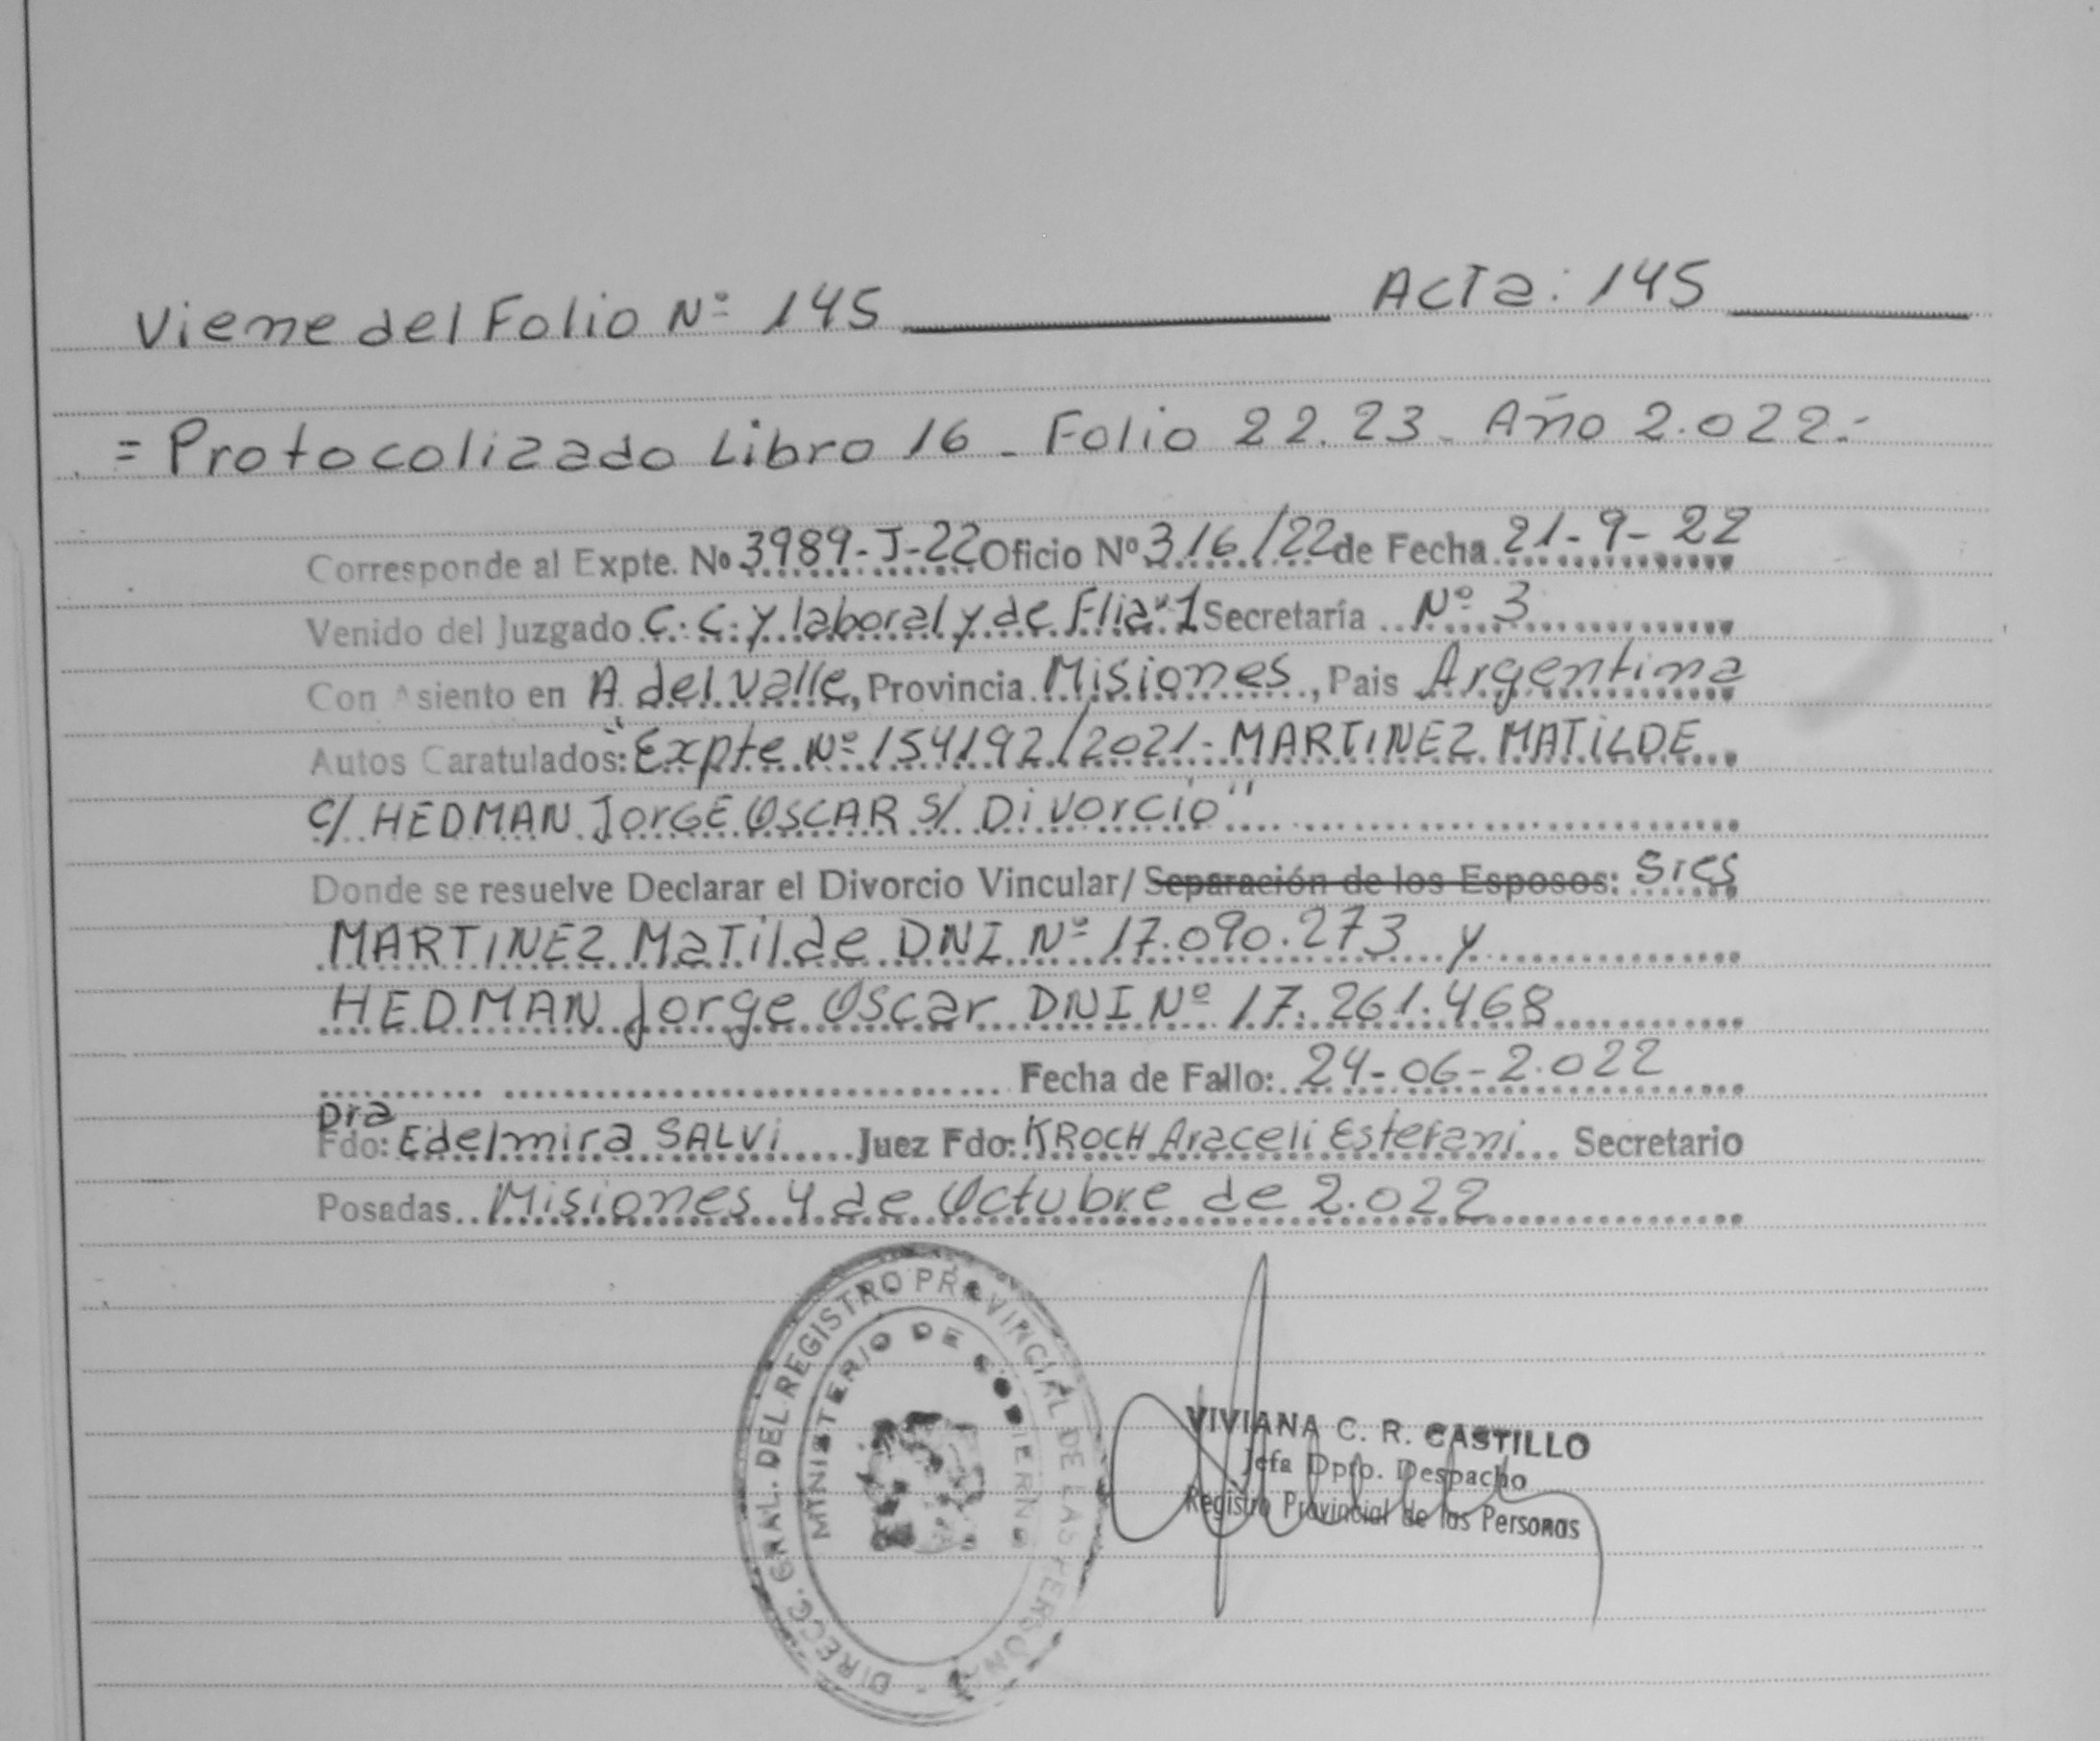 Viene del Folio Nº 145 Acta: 145
= Protocolizado Libro 16 - Folio 22.23 - Año 2.022.-
Corresponde al Expte. Nº 3989-J-22 Oficio Nº 316/22 de Fecha 21-9-22
Venido del Juzgado C.C. y laboral y de Flia Nº 1 Secretaría Nº 3
Con Asiento en A. del Valle, Provincia Misiones, Pais Argentina
Autos Caratulados: "Expte Nº 154192/2021 - MARTINEZ MATILDE
c/ HEDMAN Jorge OSCAR s/ Divorcio"
Donde se resuelve Declarar el Divorcio Vincular/ Separación de los Esposos: Sres
MARTINEZ Matilde DNI Nº 17.090.273 y
HEDMAN Jorge Oscar DNI Nº 17.261.468
Fecha de Fallo: 24-06-2.022
Dra
Fdo: Edelmira SALVI Juez Fdo: KROCH Araceli Estefani Secretario
Posadas Misiones 4 de Octubre de 2.022
DIRECC. GRAL. DEL REGISTRO PROVINCIAL DE LAS PERSONAS
MINISTERIO DE GOBIERNO
VIVIANA C. R. CASTILLO
Jefa Dpto. Despacho
Registro Provincial de las Personas